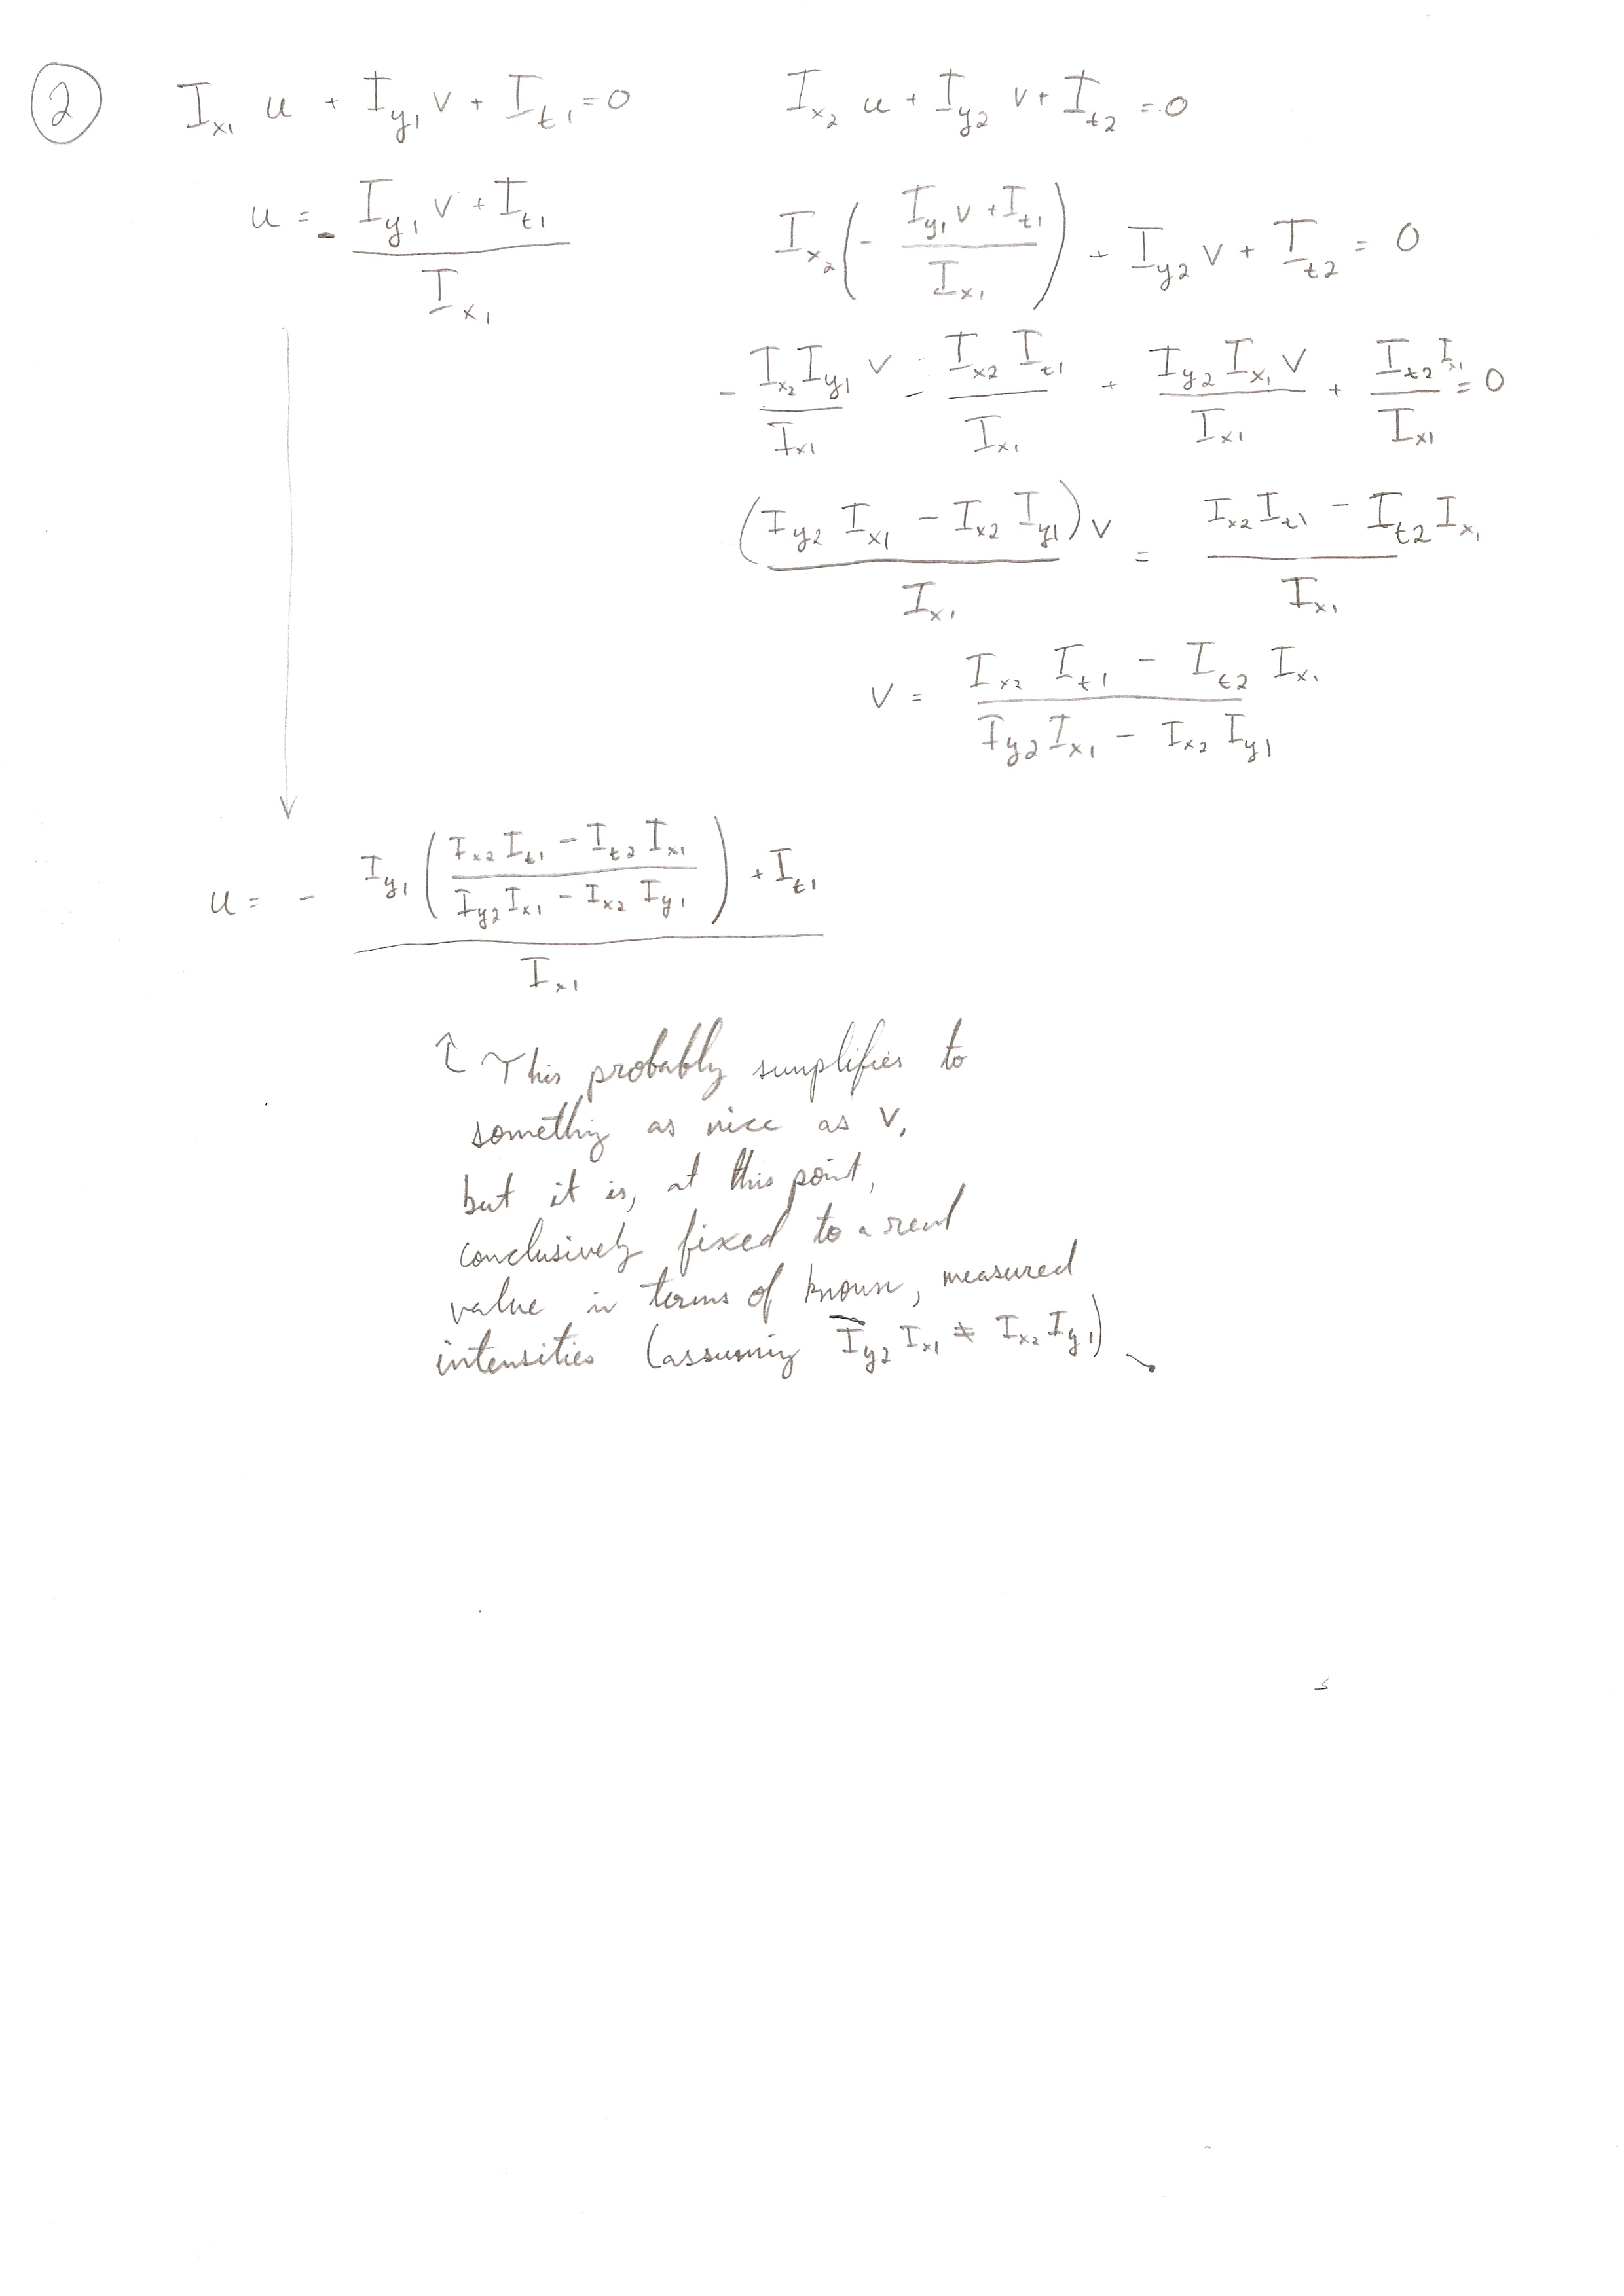 ② I_{x1} u + I_{y1} v + I_{t1} = 0    I_{x2} u + I_{y2} v + I_{t2} = 0
u = - \frac{I_{y1} v + I_{t1}}{I_{x1}}    I_{x2} \left( - \frac{I_{y1} v + I_{t1}}{I_{x1}} \right) + I_{y2} v + I_{t2} = 0
- \frac{I_{x2} I_{y1}}{I_{x1}} v - \frac{I_{x2} I_{t1}}{I_{x1}} + \frac{I_{y2} I_{x1} v}{I_{x1}} + \frac{I_{t2} I_{x1}}{I_{x1}} = 0
\frac{(I_{y2} I_{x1} - I_{x2} I_{y1}) v}{I_{x1}} = \frac{I_{x2} I_{t1} - I_{t2} I_{x1}}{I_{x1}}
v = \frac{I_{x2} I_{t1} - I_{t2} I_{x1}}{I_{y2} I_{x1} - I_{x2} I_{y1}}
u = - \frac{I_{y1} \left( \frac{I_{x2} I_{t1} - I_{t2} I_{x1}}{I_{y2} I_{x1} - I_{x2} I_{y1}} \right) + I_{t1}}{I_{x1}}
↑ This probably simplifies to
something as nice as v,
but it is, at this point,
conclusively fixed to a real
value in terms of known, measured
intensities (assuming I_{y2} I_{x1} ≠ I_{x2} I_{y1}).